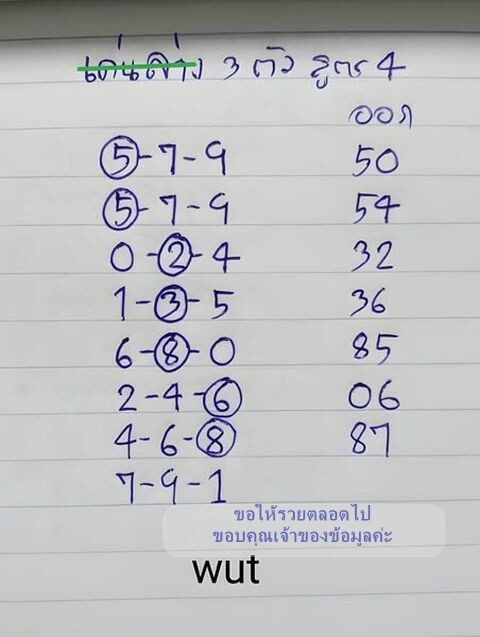 เด่นล่าง 3 ตัว สูตร 4
ออก
5-7-9 50
5-7-9 54
0-2-4 32
1-3-5 36
6-8-0 85
2-4-6 06
4-6-8 87
7-9-1
ขอให้รวยตลอดไป
ขอบคุณเจ้าของข้อมูลค่ะ
wut